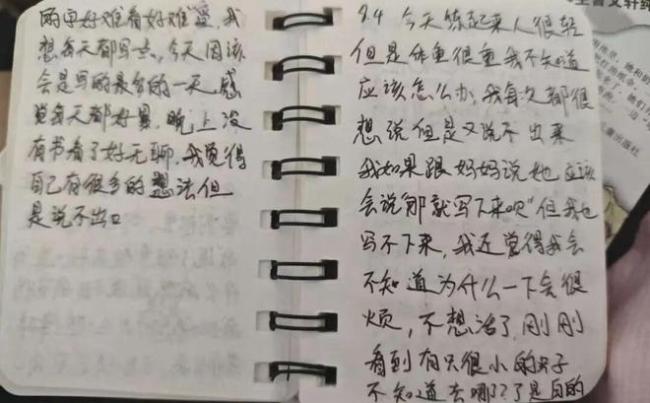 两里好难看好难受,我
想每天都写一点,今天因该
会是写的最多的一天,感
觉每天都好累,晚上没
有书看了好无聊,我觉得
自己有很多的想法但
是说不出口
9.4 今天练起来人很轻
但是体重很重我不知道
应该怎么办,我每次都很
想说但是又说不出来
我如果跟妈妈说她应该
会说那就写下来呗"但我也
写不下来,我还觉得我会
不知道为什么一下会很
烦,不想活了,刚刚
看到有只很小的蚊子
不知道去哪了?了是白的